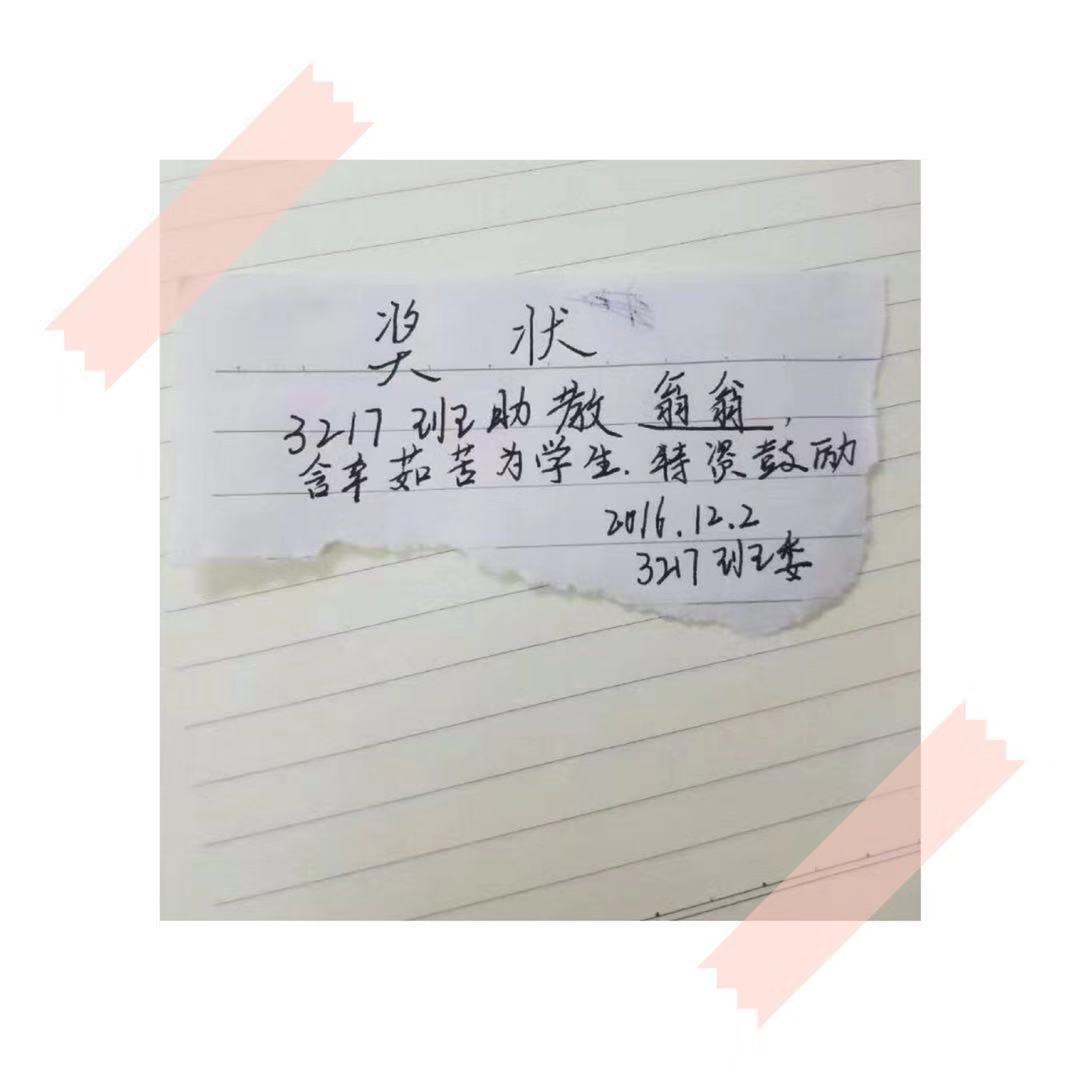 奖状
3217班助教翁翁,
含辛茹苦为学生.特资鼓励
2016.12.2
3217班委